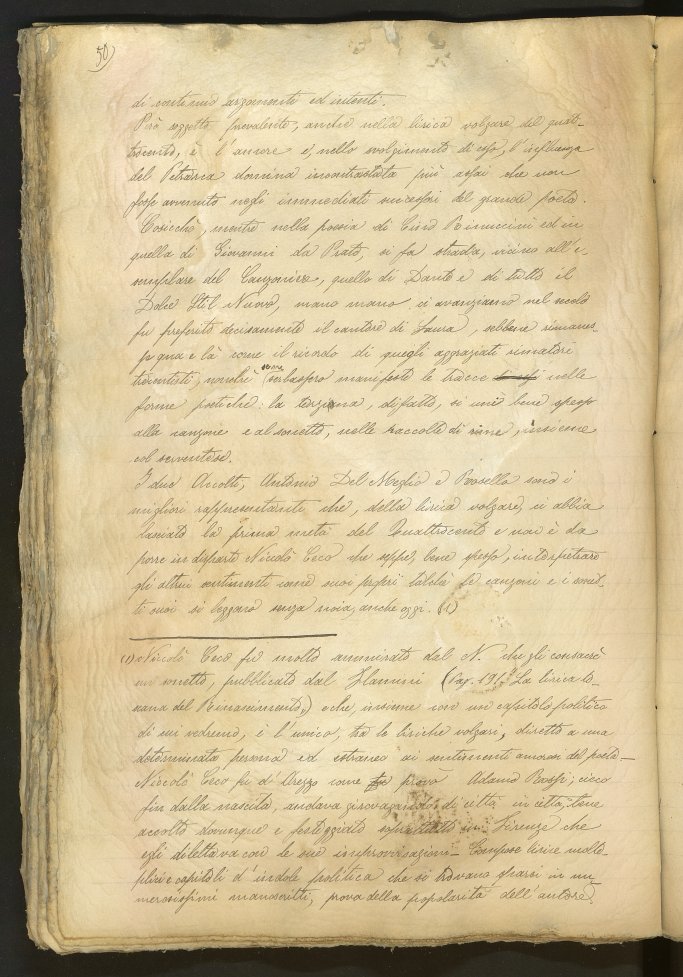 50)
di continuo argomenti ed intenti.
Però soggetto prevalente, anche nella lirica volgare del quat-
trocento, è l'amore e, nello svolgimento di esso, l'influenza
del Petrarca domina incontrastata più assai che non
fosse avvenuto negli immediati successori del grande poeta.
Cosicchè, mentre nella poesia di Cino Rinuccini ed in
quella di Giovanni da Prato, si fa strada, vicino all'e
semplare del Canzoniere, quello di Dante e di tutto il
Dolce Stil Nuovo, mano mano, ci avanziamo nel secolo
fu preferito decisamente il cantore di Laura, sebbene rimanes-
se qua e là come il ricordo di quegli aggraziati rimatori
trecentisti, nonchè serbassero manifeste le tracce nelle
forme poetiche: la terzina, difatto, si unì bene spesso
alla canzone e al sonetto, nelle raccolte di rime, insieme
col serventese.
I due Accolti, Antonio Del Meglio e Rosello sono i
migliori rappresentanti che, della lirica volgare, ci abbia
lasciato la prima metà del Quattrocento e non è da
porre in disparte Niccolò Ceco che seppe, bene spesso, interpretrare
gli altrui sentimenti come suoi propri talchè le canzoni e i sonet-
ti suoi si leggono senza noia, anche oggi. (1)
(1) Niccolò Ceco fu molto ammirato dal N. che gli consacrò
un sonetto, pubblicato dal Flamini (Pag. "La lirica to-
scana del Rinascimento,,) e che, insieme con un capitolo politico
di cui vedremo, è l'unico, tra le liriche volgari, diretto a una
determinata persona ed estraneo ai sentimenti amorosi del poeta-
Niccolò Ceco fu d'Arezzo come provò Adamo Rossi; cieco
fin dalla nascita, andava girovagando di città in città, bene
accolto dovunque e festeggiato soprattutto in Firenze che
egli dilettava con le sue improvvisazioni- Compose liriche molte-
plici e capitoli d'indole politica che si trovano sparsi in nu
merosissimi manoscritti, prova della popolarità dell'autore.